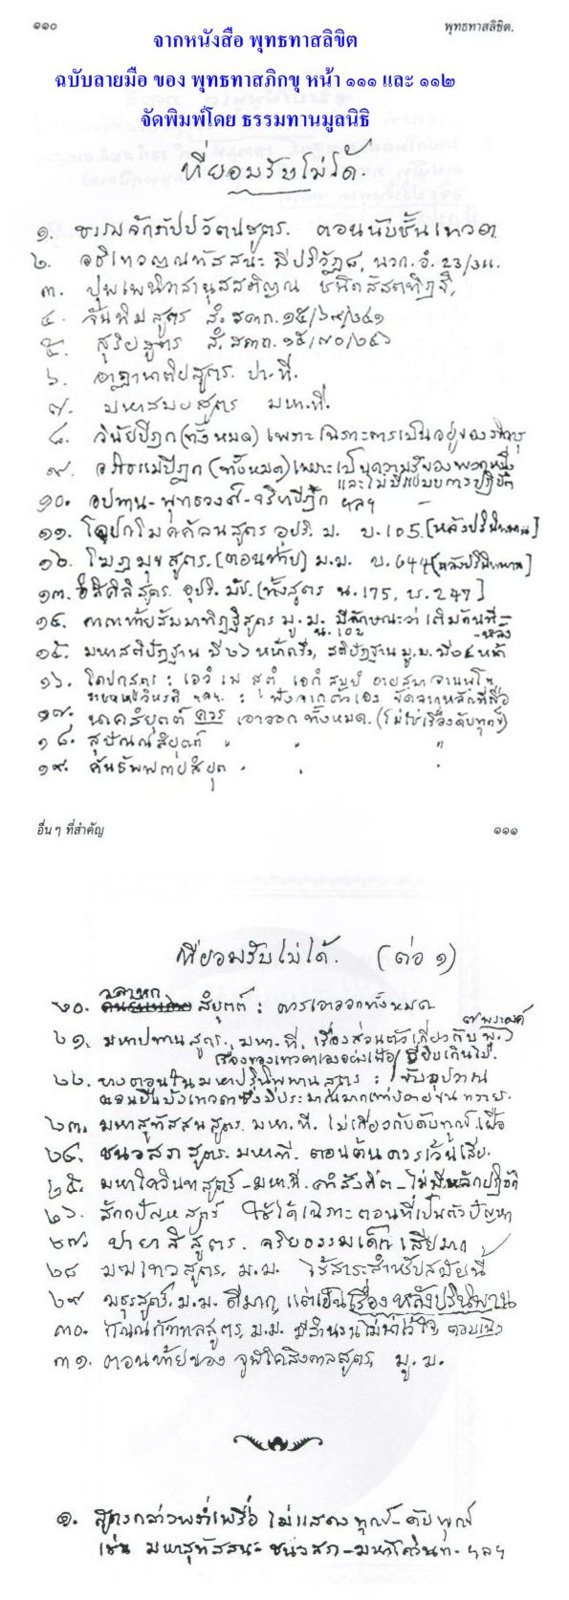 ๑๑๐
พุทธทาสลิขิต.
จากหนังสือ พุทธทาสลิขิต
ฉบับลายมือ ของ พุทธทาสภิกขุ หน้า ๑๑๑ และ ๑๑๒
จัดพิมพ์โดย ธรรมทานมูลนิธิ
ที่ยอมรับไม่ได้.
๑. ธรรมจักกัปปวัตนสูตร. ตอนนับชั้นเทวดา
๒. อธิเทวญาณทัสสนะ มีปริวัฏ๘, นวก.อํ. 23/311.
๓. ปุพเพนิวาสานุสสติญาณ ชนิดสัสสตทิฏฐิ,
๔. จันทิมสูตร สํ.สคาถ.๑๕/๖๙/๒๔๑
๕. สุริยสูตร สํ.สคาถ.๑๕/๗๐/๒๔๖
๖. อาฏานาติยสูตร. ปา.ที.
๗. มหาสมยสูตร มหา.ที.
๘. วินัยปิฎก(ทั้งหมด) เพราะเฉพาะการเป็นอยู่ของภิกษุ
๙. อภิธรรมปิฎก (ทั้งหมด) เพราะเป็นความรู้ของพวกหนึ่ง
และไม่มีแบบการปฏิบัติ
๑๐. อปทาน-พุทธวงศ์-จริยาปิฎก ฯลฯ
๑๑. โคปกโมคคัลลานสูตร อุปริ. ม. บ.105.[หลังปรินิพพาน]
๑๒. โฆฏมุขสูตร.(ตอนท้าย) ม.ม. บ.644[หลังปรินิพพาน]
๑๓. อิสิคิลิสูตร. อุปริ. ม.(ทั้งสูตร น.175, บ.247]
๑๔. ตอนท้ายสัมมาทิฏฐิสูตร มู.ม. มีลักษณะว่า เติมกันที
น.102 -หลัง
๑๕. มหาสติปัฏฐาน ที่๖ มหาที., สติปัฏฐาน มู.ม. มี๒๔ หน้า
๑๖. : เอวํ เม สุตํ เอกํ สมยํ อายสฺมา อานนฺโท
ราชคเหวิหรติ ฯลฯ. : ฟังจากตัวเอง ขัดจากหลักที่สื่อ
๑๗. นาคสังยุตต์ ควร เอาออกทั้งหมด.(ไม่ใช่เรื่องดับทุกข์)
๑๘. สุปัณณสังยุตต์ " " "
๑๙. คันธัพพกายสังยุต " " "
อื่นๆ ที่สำคัญ
๑๑๑
ที่ยอมรับไม่ได้. (ต่อ ๑)
วลาหก
๒๐. สังยุตต์ : ควรเอาออกทั้งหมด.
๒๑. มหาปทานสูตร, มหา.ที, เรื่องส่วนตัวเกี่ยวกับ พุ.
๗ พระองค์
เรื่องของเทวดาเองเฝือ ที่ยิบเกินไป.
๒๒. บางตอนในมหาปรินิพพานสูตร : จับอุปวาณ
ตอนยืนบังเทวดาซึ่งมีประมาณมากเท่าปลายขนทราย.
๒๓. มหาสุทัสสนสูตร. มหา.ที. ไม่เกี่ยวกับดับทุกข์. เฝือ
๒๔. ชนวสภสูตร. มหา.ที. ตอนต้นควรเว้นเสีย.
๒๕. มหาโควินทสูตร์-มหา.ที. คำสั่งคีต-ไม่มีหลักปฏิบัติ
๒๖. สักกปัญหสูตร์ ใช้ได้เฉพาะตอนที่เป็นตัวปัญหา
๒๗. ปายาสิสูตร. จริยธรรมเด็กเสียมาก
๒๘ มฆเทวสูตร, ม.ม. ไร้สาระสำหรับสมัยนี้
๒๙ มธุรสูตร์, ม.ม. ดีมาก, แต่เป็นเรื่องหลังปรินิพพาน
๓๐. กัณณกัตถลสูตร, ม.ม. มีสำนวนไม่น่าไว้ใจ,
๓๑. ตอนท้ายของ จูฬโคสิงคาลสูตร, มู.ม.
๑. สูตรกล่าวพร่ำเพรื่อ ไม่แสดงทุกข์-ดับทุกข์
เช่น มหาสุทัสสนะ-ชนวสภ-มหาโควินท- ฯลฯ